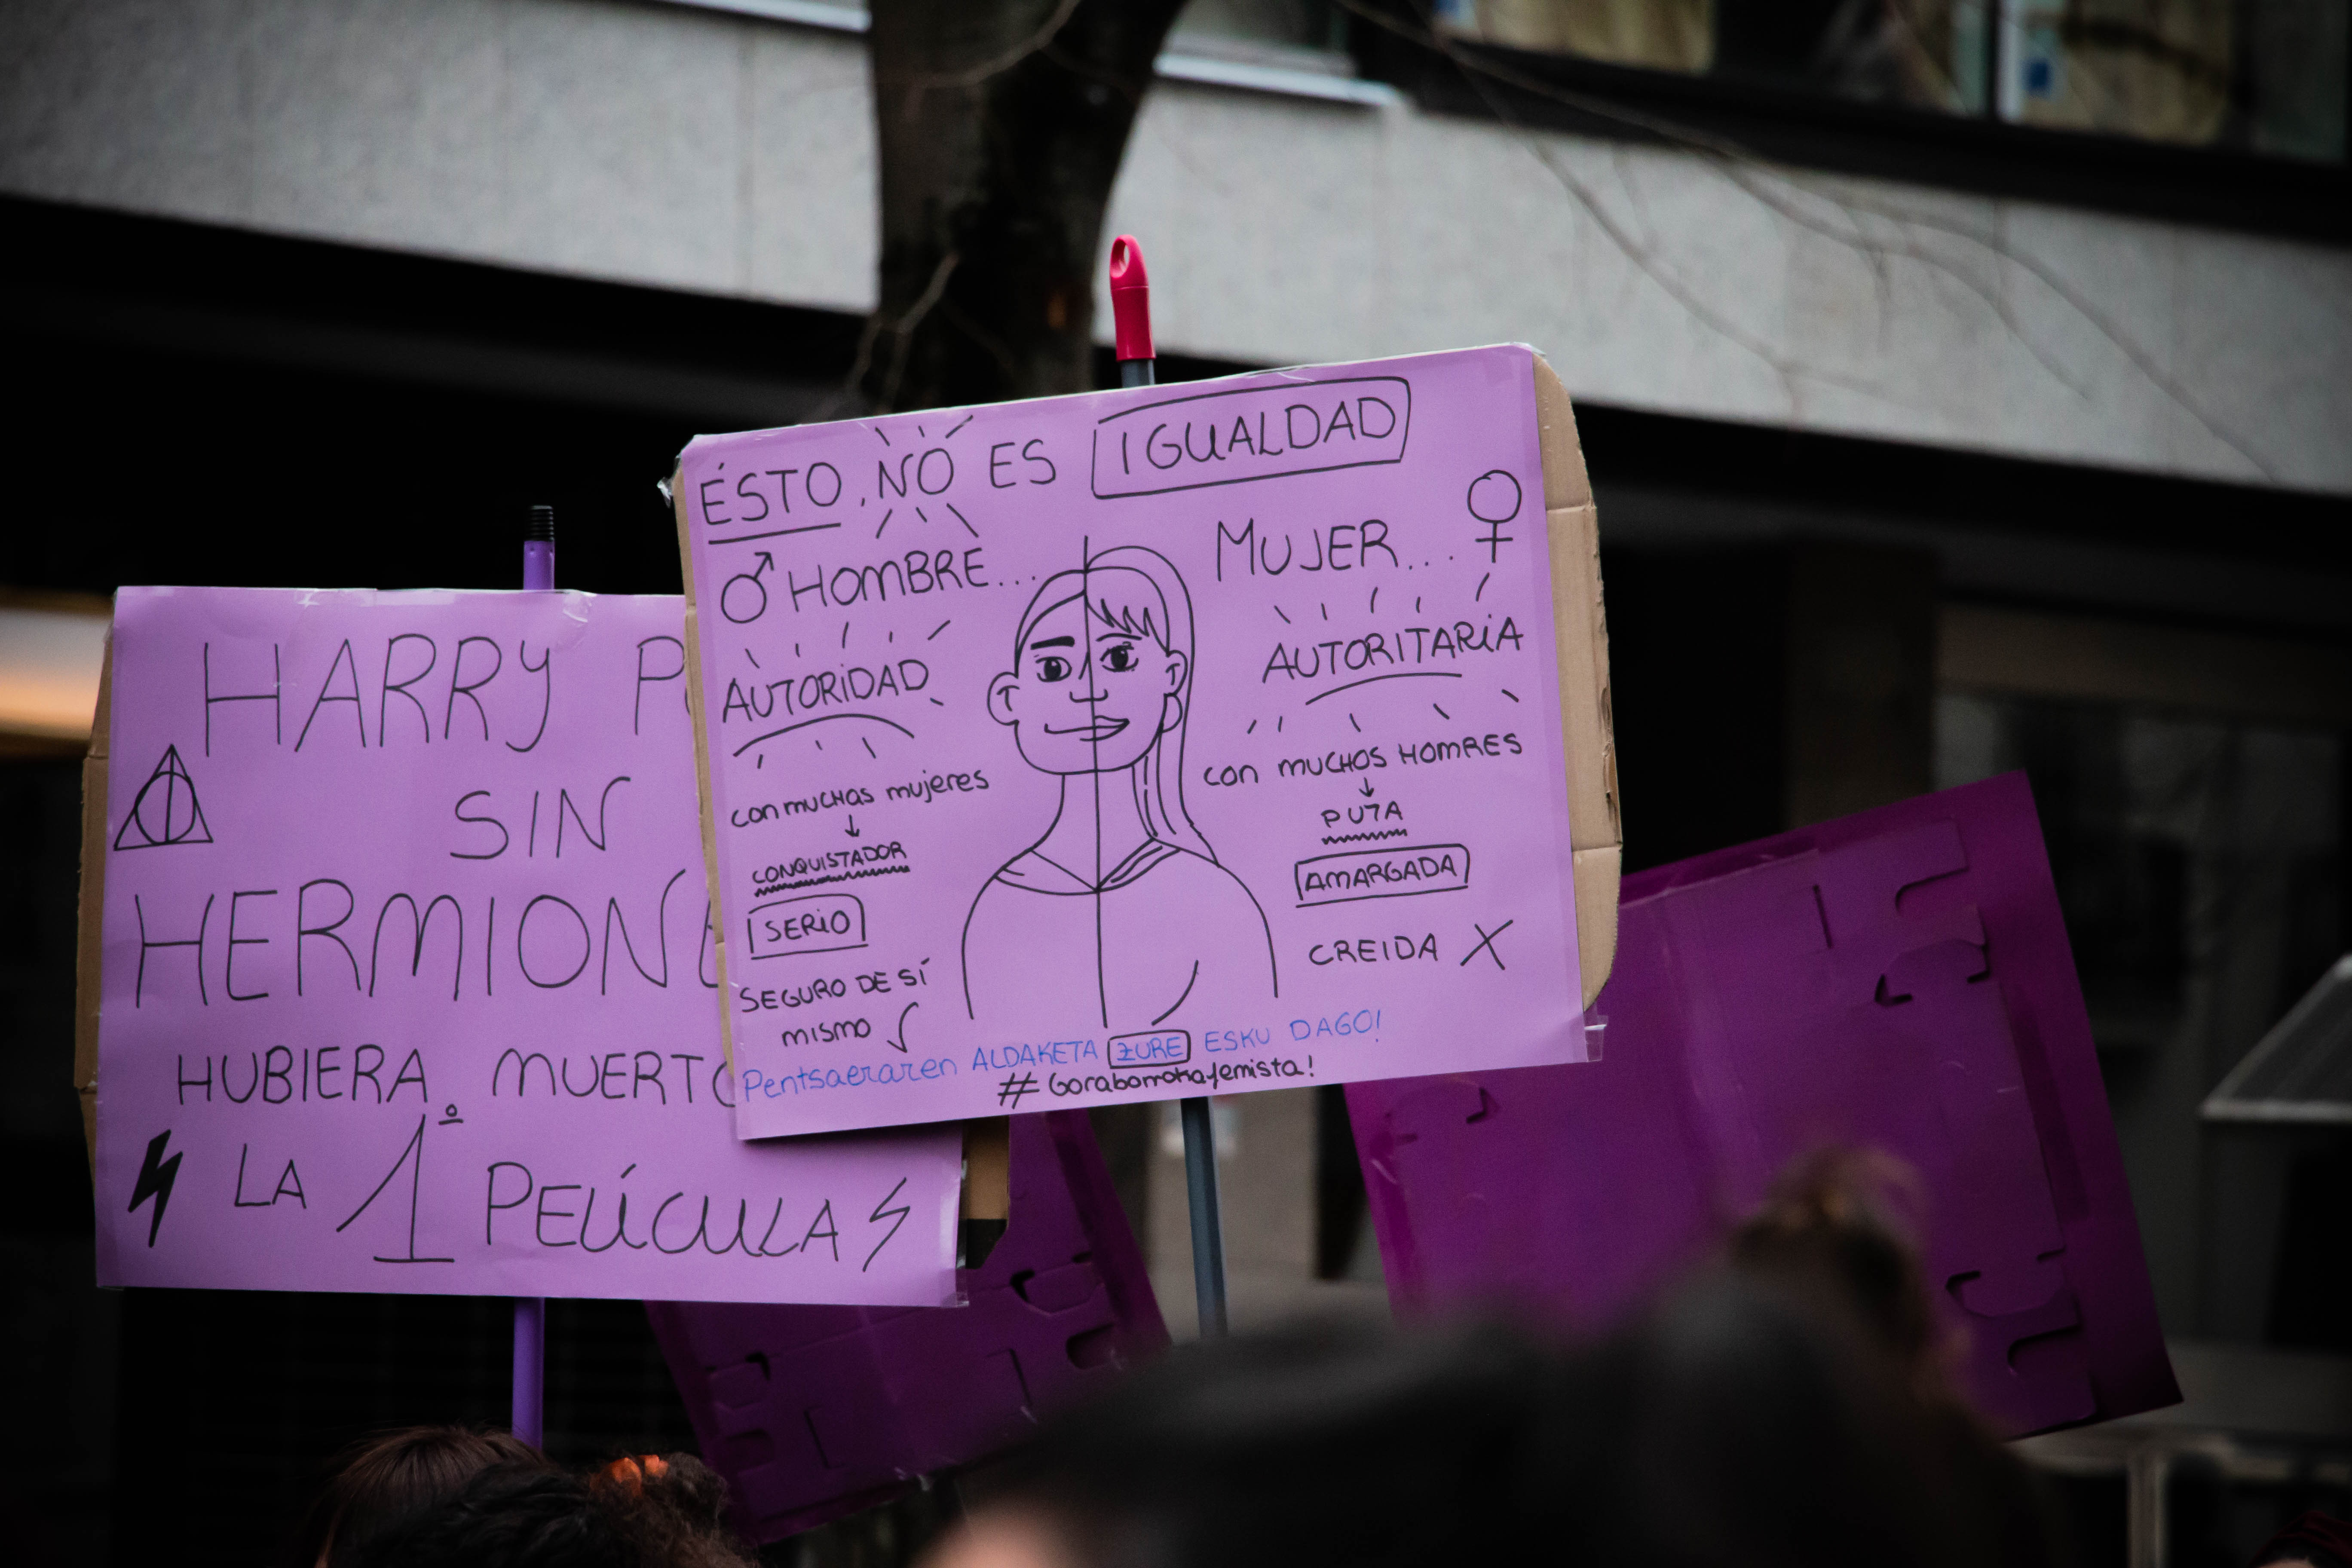 HARRY P
SIN
HERMION
HUBIERA MUERTO
LA 1º PELÍCULA
ÉSTO, NO ES IGUALDAD
♂ HOMBRE...
AUTORIDAD
con muchas mujeres
↓
CONQUISTADOR
SERIO
SEGURO DE SÍ
MISMO ✓
MUJER... ♀
AUTORITARIA
CON MUCHOS HOMRES
↓
PUTA
AMARGADA
CREIDA X
Pentsaeraren ALDAKETA ZURE ESKU DAGO!
#Goraborrokafemista!